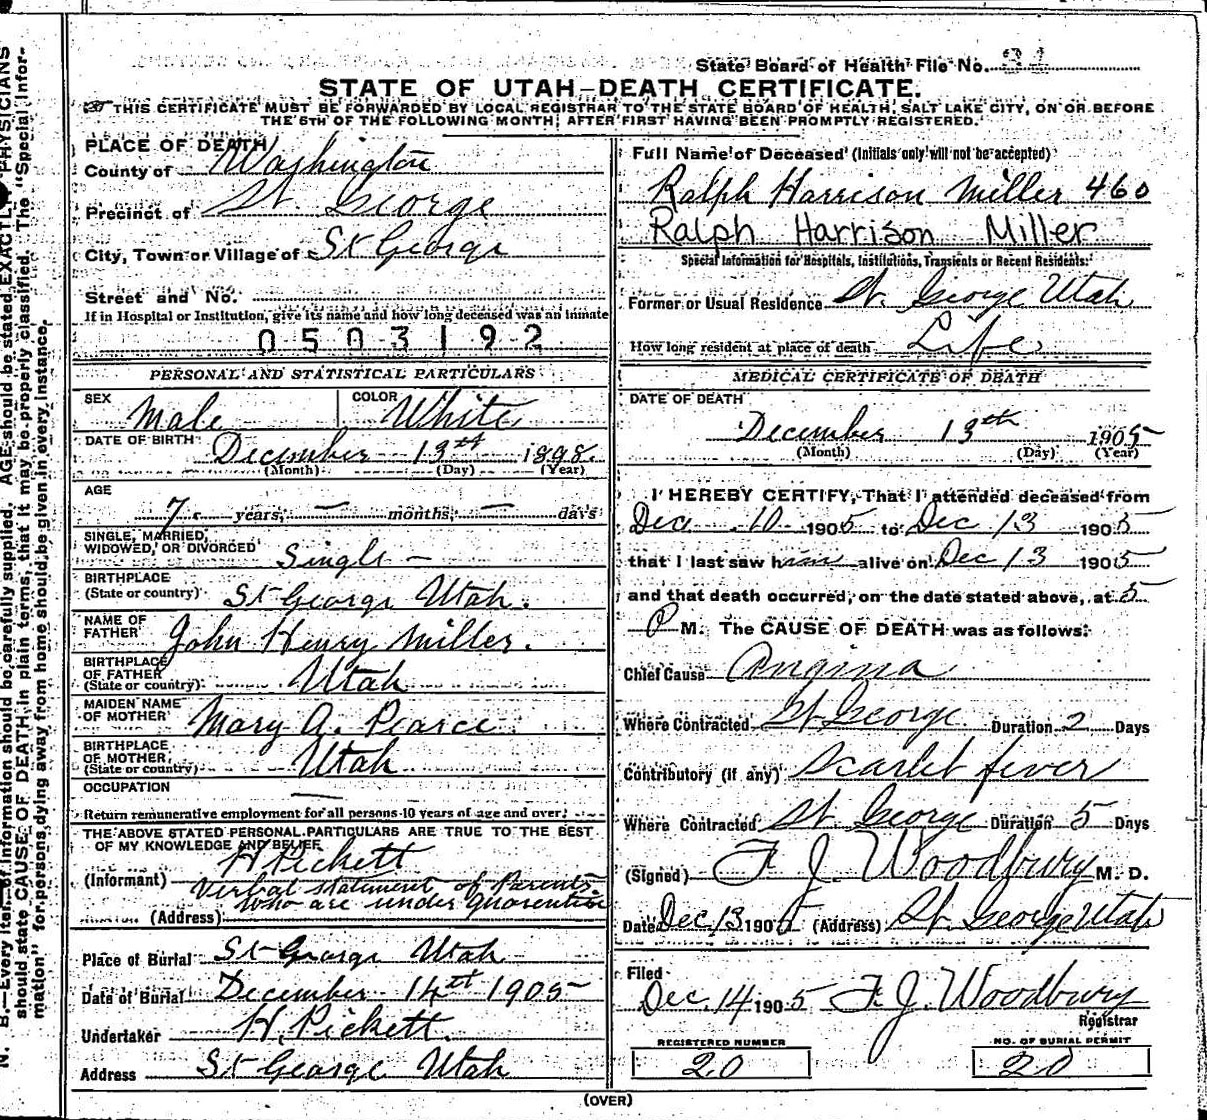 State Board of Health File No.
STATE OF UTAH—DEATH CERTIFICATE.
THIS CERTIFICATE MUST BE FORWARDED BY LOCAL REGISTRAR TO THE STATE BOARD OF HEALTH, SALT LAKE CITY, ON OR BEFORE
THE 5TH OF THE FOLLOWING MONTH, AFTER FIRST HAVING BEEN PROMPTLY REGISTERED.
PLACE OF DEATH
County of Washington
Precinct of St. George
City, Town or Village of St George
Street and No.
If in Hospital or Institution, give its name and how long deceased was an inmate
0503192
PERSONAL AND STATISTICAL PARTICULARS
SEX Male COLOR White
DATE OF BIRTH December 13th 1898.
(Month) (Day) (Year)
AGE
7 years, — months, — days
SINGLE, MARRIED,
WIDOWED, OR DIVORCED Single —
BIRTHPLACE
(State or country) St George Utah.
NAME OF
FATHER John Henry Miller.
BIRTHPLACE
OF FATHER
(State or country) Utah
MAIDEN NAME
OF MOTHER Mary A. Pearce
BIRTHPLACE
OF MOTHER
(State or country) Utah
OCCUPATION —
Return remunerative employment for all persons 10 years of age and over.
THE ABOVE STATED PERSONAL PARTICULARS ARE TRUE TO THE BEST
OF MY KNOWLEDGE AND BELIEF
(Informant) H Pickett
Verbal statement of Parents.
who are under Quarentine
(Address)
Place of Burial St George Utah
Date of Burial December 14th 1905
Undertaker H. Pickett.
Address St George Utah
Full Name of Deceased (Initials only will not be accepted)
Ralph Harrison Miller 460
Ralph Harrison Miller
Special Information for Hospitals, Institutions, Transients or Recent Residents:
Former or Usual Residence St. George Utah
How long resident at place of death Life
MEDICAL CERTIFICATE OF DEATH
DATE OF DEATH
December 13th 1905
(Month) (Day) (Year)
I HEREBY CERTIFY, That I attended deceased from
Dec 10 1905 to Dec 13 1905
that I last saw him alive on Dec 13 1905
and that death occurred, on the date stated above, at 5
P M. The CAUSE OF DEATH was as follows:
Chief Cause Angina
Where Contracted St George Duration 2 Days
Contributory (if any) Scarlet fever
Where Contracted St. George Duration 5 Days
(Signed) F. J. Woodbury M. D.
Date Dec 13 1905 (Address) St. George Utah
Filed
Dec. 14 1905 F. J. Woodbury
Registrar
REGISTERED NUMBER
20
NO. OF BURIAL PERMIT
20
(OVER)
N. B.—Every item of information should be carefully supplied. AGE should be stated EXACTLY. PHYSICIANS
should state CAUSE OF DEATH in plain terms, that it may be properly classified. The "Special Infor-
mation" for persons dying away from home should be given in every instance.